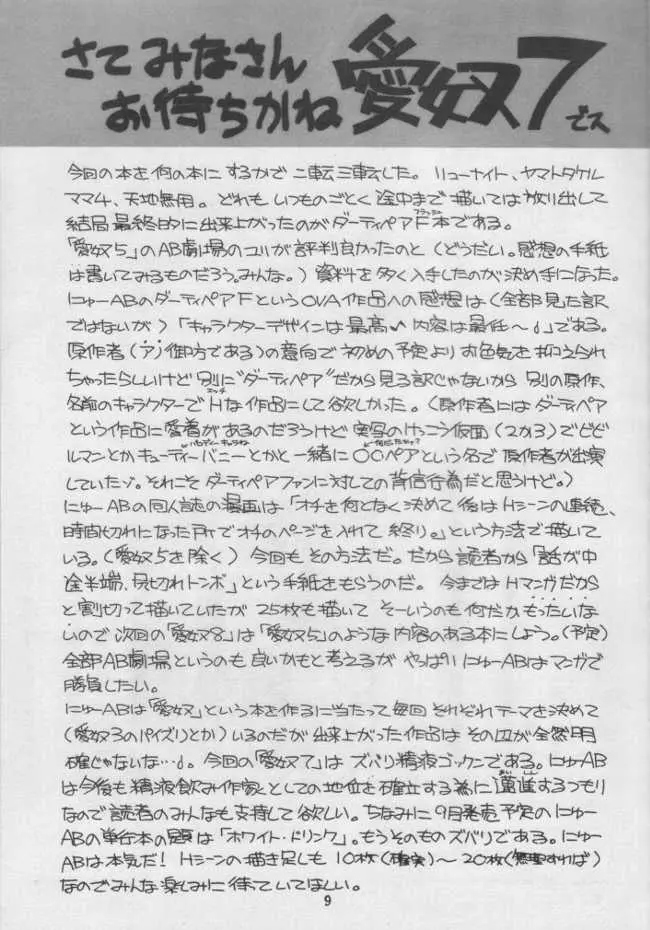 さてみなさん
お待ちかね 愛奴7でス
今回の本を何の本にするかで二転三転した。リューナイト、ヤマトタケル
ママ4、天地無用。どれもいつものごとく途中まで描いては放り出して
結局最終的に出来上がったのがダーティペアF本である。
フラッシュ
「愛奴5」のAB劇場のユリが評判良かったのと(どうだい。感想の手紙
は書いてみるものだろう。みんな。)資料を多く入手したのが決め手になった。
にゅーABのダーティペアFというOVA作品への感想は(全部見た訳
ではないが)「キャラクターデザインは最高♪内容は最低〜♩」である。
原作者(ア)御方である)の意向で初めの予定よりお色気を抑えられ
ちゃったらしいけど別に“ダーティペア”だから見る訳じゃないから別の原作、
名前のキャラクターでHな作品にして欲しかった。(原作者にはダーティペア
エッチ
という作品に愛着があるのだろうけど実写のけっこう仮面(2か3)でビビ
ルマンとかキューティーバニーとかと一緒に〇〇ペアという名で原作者が出演
していたゾ。それこそダーティペアファンに対しての背信行為だと思うけど。)
にゅーABの同人誌の漫画は「オチを何となく決めて後はHシーンの連続、
時間切れになった所でオチのページを入れて終り。」という方法で描いて
いる。(愛奴5を除く)今回もその方法だ。だから読者から「話が中
途半端、尻切れトンボ」という手紙をもらうのだ。今まではHマンガだから
と割切って描いていたが25枚も描いてそーいうのも何だかもったいな
いので次回の「愛奴8」は「愛奴5」のような内容のある本にしよう。(予定)
全部AB劇場というのも良いかもと考えるがやっぱりにゅーABはマンガで
勝負したい。
にゅーABは「愛奴」という本を作るに当たって毎回それぞれテーマを決めて
(愛奴3のパイズリとか)いるのだが出来上がった作品はその辺が全然明
確じゃないな…♩。今回の「愛奴7」はズバリ精液ゴックンである。にゅーAB
は今後も精液飲み作家としての地位を確立する為に邁進するつもり
なので読者のみんなも支持して欲しい。ちなみに9月発売予定のにゅー
ABの単行本の題は「ホワイト・ドリンク」。もうそのものズバリである。にゅー
ABは本気だ!Hシーンの描き足しも10枚(確実)〜20枚(無理すれば)
なのでみんな楽しみに待っていてほしい。
9